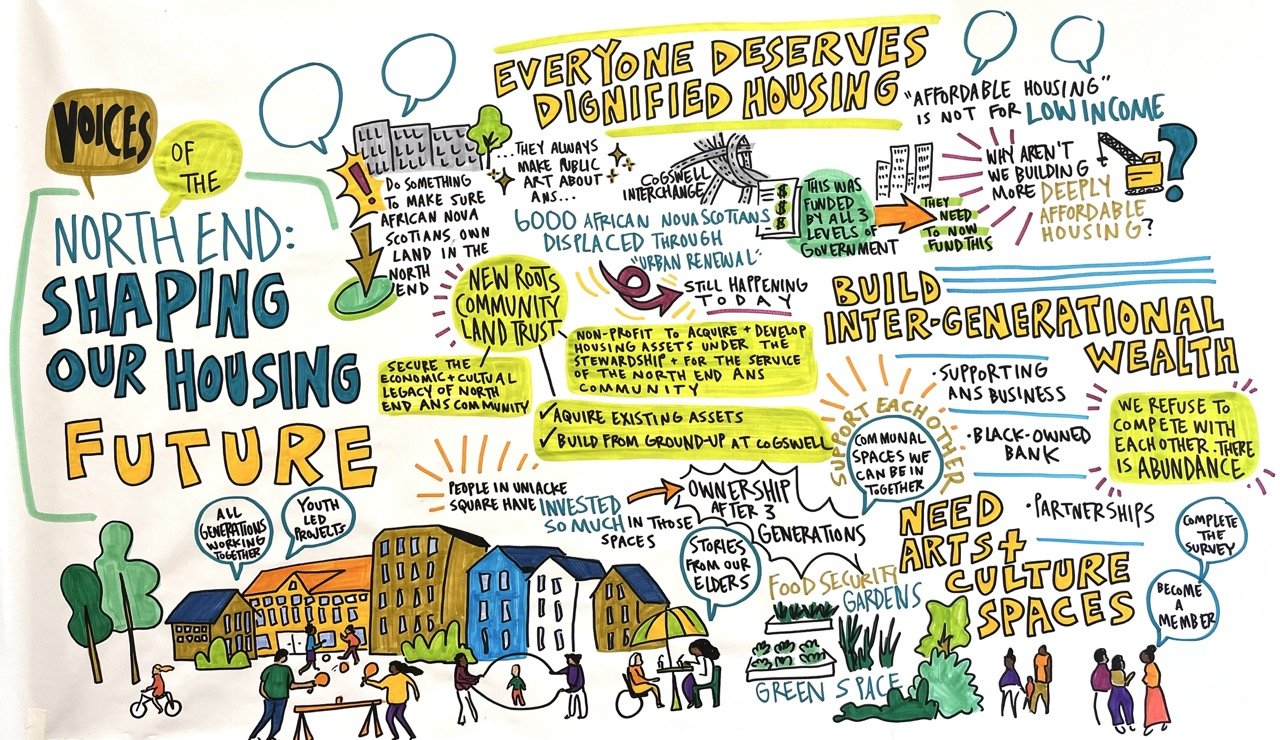 VOICES
OF
THE
NORTH END:
SHAPING
OUR HOUSING
FUTURE
EVERYONE DESERVES
DIGNIFIED HOUSING
DO SOMETHING
TO MAKE SURE
AFRICAN NOVA
SCOTIANS, OWN
LAND IN THE
NORTH
END
...THEY ALWAYS
MAKE PUBLIC
ART ABOUT
ANS...
COGSWELL
INTERCHANGE
6000 AFRICAN NOVA SCOTIANS
DISPLACED THROUGH
"URBAN RENEWAL"
STILL HAPPENING
TODAY
$
$
$
THIS WAS
FUNDED
BY ALL 3
LEVELS OF
GOVERNMENT
THEY
NEED
TO NOW
FUND THIS
"AFFORDABLE HOUSING"
IS NOT FOR LOW INCOME
WHY AREN'T
WE BUILDING
MORE DEEPLY
AFFORDABLE
HOUSING?
?
NEW ROOTS
COMMUNITY
LAND TRUST
SECURE THE
ECONOMIC + CULTUAL
LEGACY OF NORTH
END ANS COMMUNITY
NON-PROFIT TO ACQUIRE + DEVELOP
HOUSING ASSETS UNDER THE
STEWARDSHIP + FOR THE SERVICE
OF THE NORTH END ANS
COMMUNITY
✓ AQUIRE EXISTING ASSETS
✓ BUILD FROM GROUND-UP AT COGSWELL
BUILD
INTER-GENERATIONAL
WEALTH
• SUPPORTING
ANS BUSINESS
• BLACK-OWNED
BANK
• PARTNERSHIPS
WE REFUSE TO
COMPETE WITH
EACH OTHER. THERE
IS ABUNDANCE
SUPPORT EACH OTHER
COMMUNAL
SPACES WE
CAN BE IN
TOGETHER
PEOPLE IN UNIACKE
SQUARE HAVE INVESTED
SO MUCH IN THOSE
SPACES
OWNERSHIP
AFTER 3
GENERATIONS
ALL
GENERATIONS
WORKING
TOGETHER
YOUTH
LED
PROJECTS
STORIES
FROM OUR
ELDERS
FOOD SECURITY
GARDENS
GREEN SPACE
NEED
ARTS +
CULTURE
SPACES
COMPLETE
THE
SURVEY
BECOME
A
MEMBER